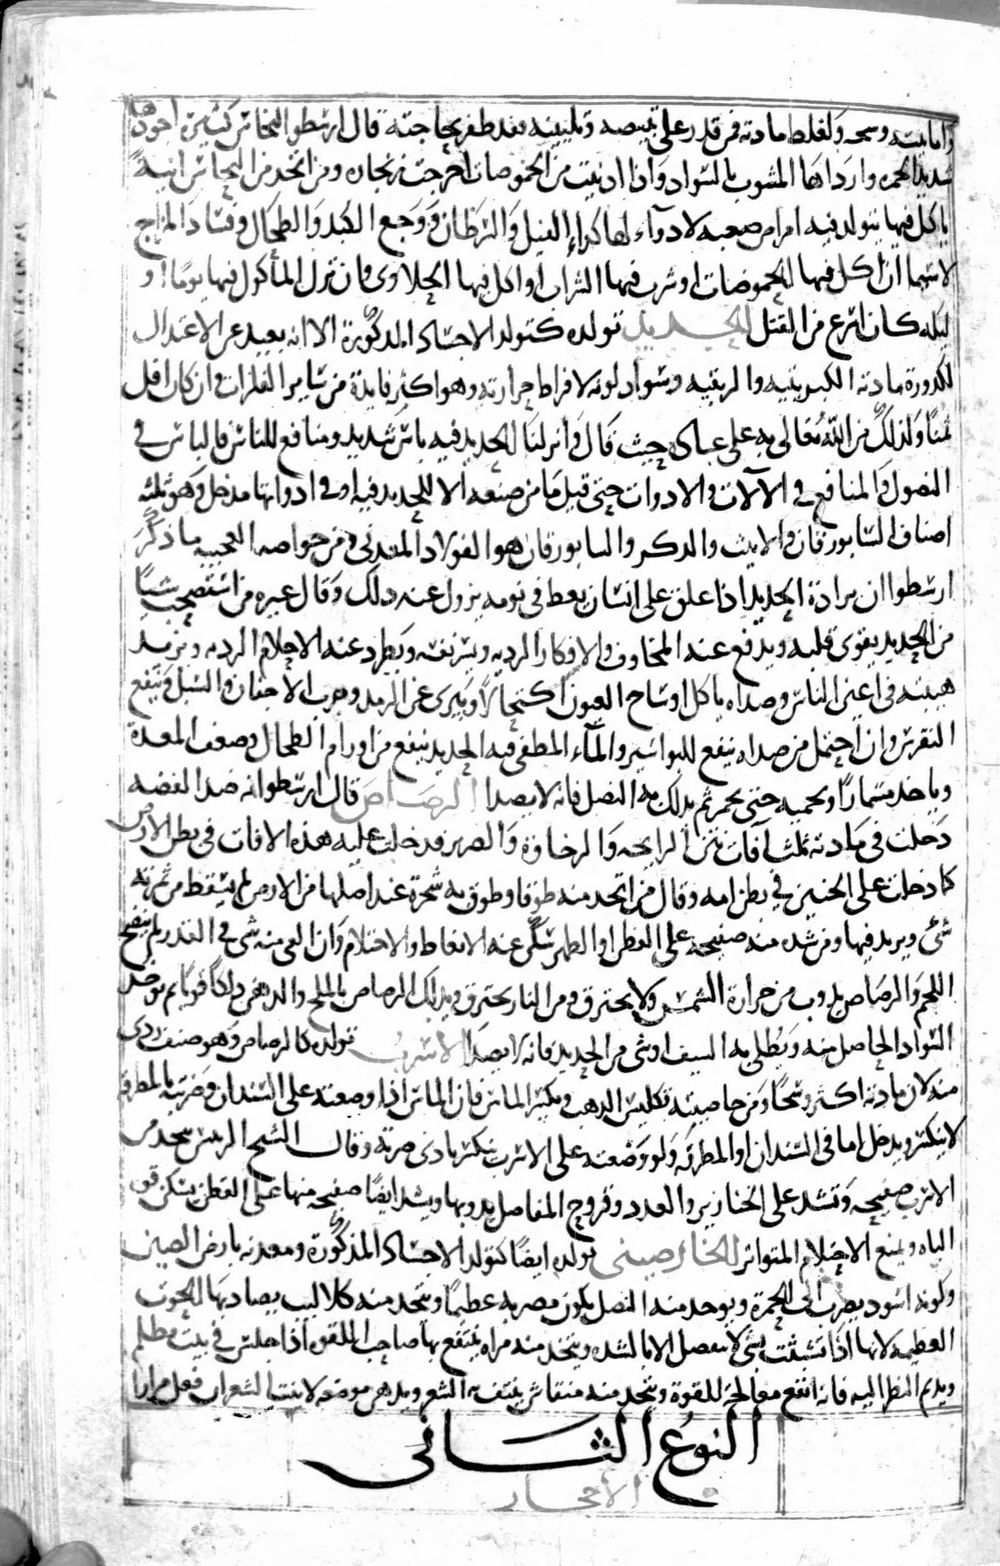 واما بنيته وسحه ولغلط مادته فمن قدر على تبيضه وتليينه فقد ظفر بحاجته قال ارسطو النحاس كثيرة اجودها
شديد الحمره وارداها المشوب بالسواد واذا ادنيت من الحموضات اخرجت زنجاره ومن اتخذ من النحاس انية
ياكل فيها يتولد فيه امراض صعبه لا دوآء لها كداء الفيل والسرطان ووجع الكبد والطحال وفساد المزاج
لاسيما ان اكل فيها الحموضات او شرب فيها الشراب او اكل فيها الحلاوى فان ترك المأكول فيها يومًا او
ليله كان اسرع من القتل الحديد تولده كتولد الاجساد المذكورة الا انه بعيد عن الاعتدال
لكدورة مادته الكبريتيه والزيبقيه وسواد لونه لافراط حرارته وهو اكثر فايدة من ساير الفلزات وان كان اقل
ثمنًا ولذلك من الله تعالى به على عباده حيث قال وانزلنا الحديد فيه باس شديد ومنافع للناس فالباس في
النصول والمنافع في الآلات والادوات حتى قيل ما من صنعه الا للحديد فيه او في ادواتها مدخل وهو ثلثه
اصناف السابورقان والانيث والذكر والسابورقان هو الفولاد المعدني ومن خواصه العجيبه ما ذكره
ارسطو ان برادة الحديد اذا علق على انسان يغط في نومه يزول عنه ذلك وقال غيره من استصحب شيئًا
من الحديد يقوى قلبه ويدفع عنه المخاوف والافكار الرديه ويسر نفسه ويطرد عنه الاحلام الرديه ويزيد
هيبته في اعين الناس وصداه ياكل اوساخ العيون اكتحالًا ويبرى عن الرمد وجرب الاجفان والسبل وينفع
النقرس وان احتمل من صداه ينفع للبواسير والمآء المطفى فيه الحديد ينفع من اورام الطحال وضعف المعدة
وياخذ مسمارًا ويحميه حتى يحمر ثم يدلك به النصل فانه لا يصدا الرصاص قال ارسطو انه ضد الفضه
دخلت في مادته ثلث آفات نتن الرايحه والرخاوة والصرير فدخلت عليه هذه الافات في بطن الارض
كما دخلت على الجنين في بطن امه وقال من اتخذ منه طوقا وطوق به شجرة عند اصلها من الارض لم يسقط من ثمرته
شئ ويزيد فيها ومن شد منه صفيحة على القطن او الظهر سكن عنه الانعاظ والاحتلام وان القى منه شئ في القدر لم ينضج
اللحم والرصاص يذوب من حرارة الشمس ولا يحترق ومن النار يحترق ويدلك الرصاص بالملح والدهن دلكًا قويًا ثم يوخذ
السواد الحاصل منه ويطلى به السيف او شئ من الحديد فانه لا يصدا الاسرب تولده كالرصاص وهو صنف ردى
منه لان مادته اكثر وسخًا ومن خاصيته تكليس الذهب وتكسير الماس فان الماس اذا وضعته على السندان وضربته بالمطرقه
لا ينكسر ويدخل اما في السندان او المطرقه ولو وضعته على الاسرب ينكسر بادنى ضربة وقال الشيخ الرئيس يتخذ من
الاسرب صفيحه وتشد على الخنازير والغدد وقروح المفاصل يذيبها ويشد ايضًا صفيحه منها على القطن يسكن قوى
الباه ويمنع الاحتلام المتواتر الخارصينى تولده ايضًا كتولد الاجساد المذكورة ومعدنه بارض الصين
ولونه اسود يضرب الى الحمرة ويوخذ منه النصل يكون مضربه عظيمًا ويتخذ منه كلاليب يصاد بها الحوت
العظيمه لانها اذا تشبثت بشئ لا ينفصل الا بالشده ويتخذ منه مراه ينتفع بها صاحب اللقوه اذا جلس في بيت مظلم
ويديم النظر اليه فانه انفع معالجة للقوة ويتخذ منه منقاش ينتف به الشعر ويدهن موضعه لا ينبت الشعر ان فعل مرارا
النوع الثانى
الاحجار